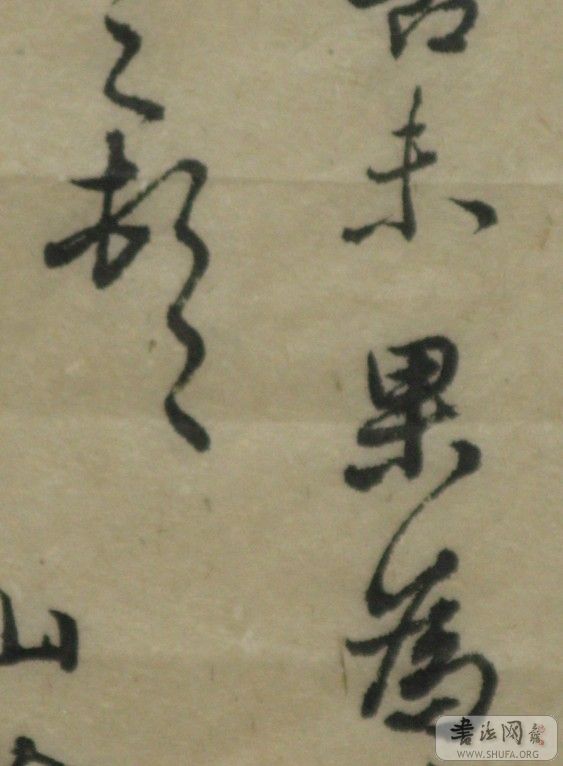 未果為
之頓首
山
書法网
WWW.SHUFA.ORG